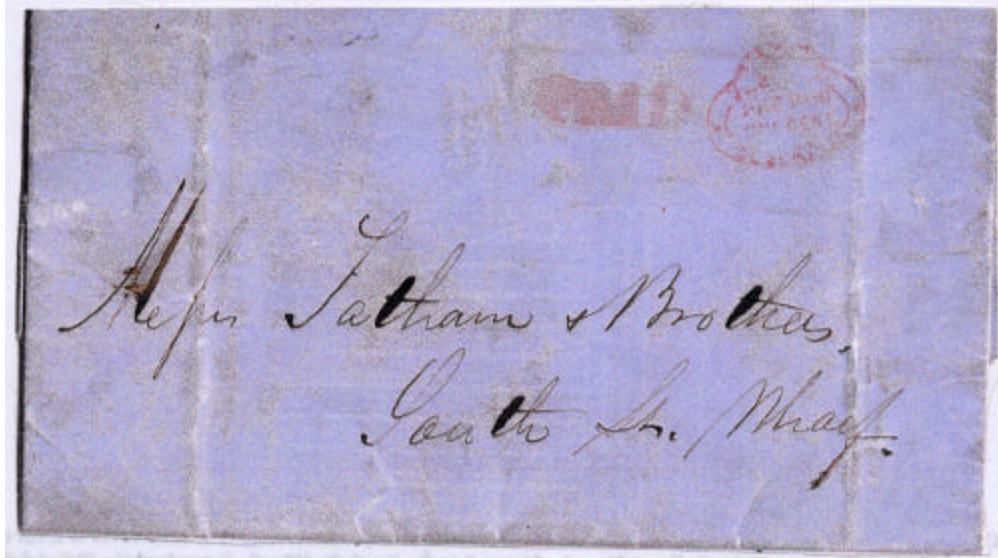 PAID
Messrs Tatham & Brothers,
South St. Wharf.